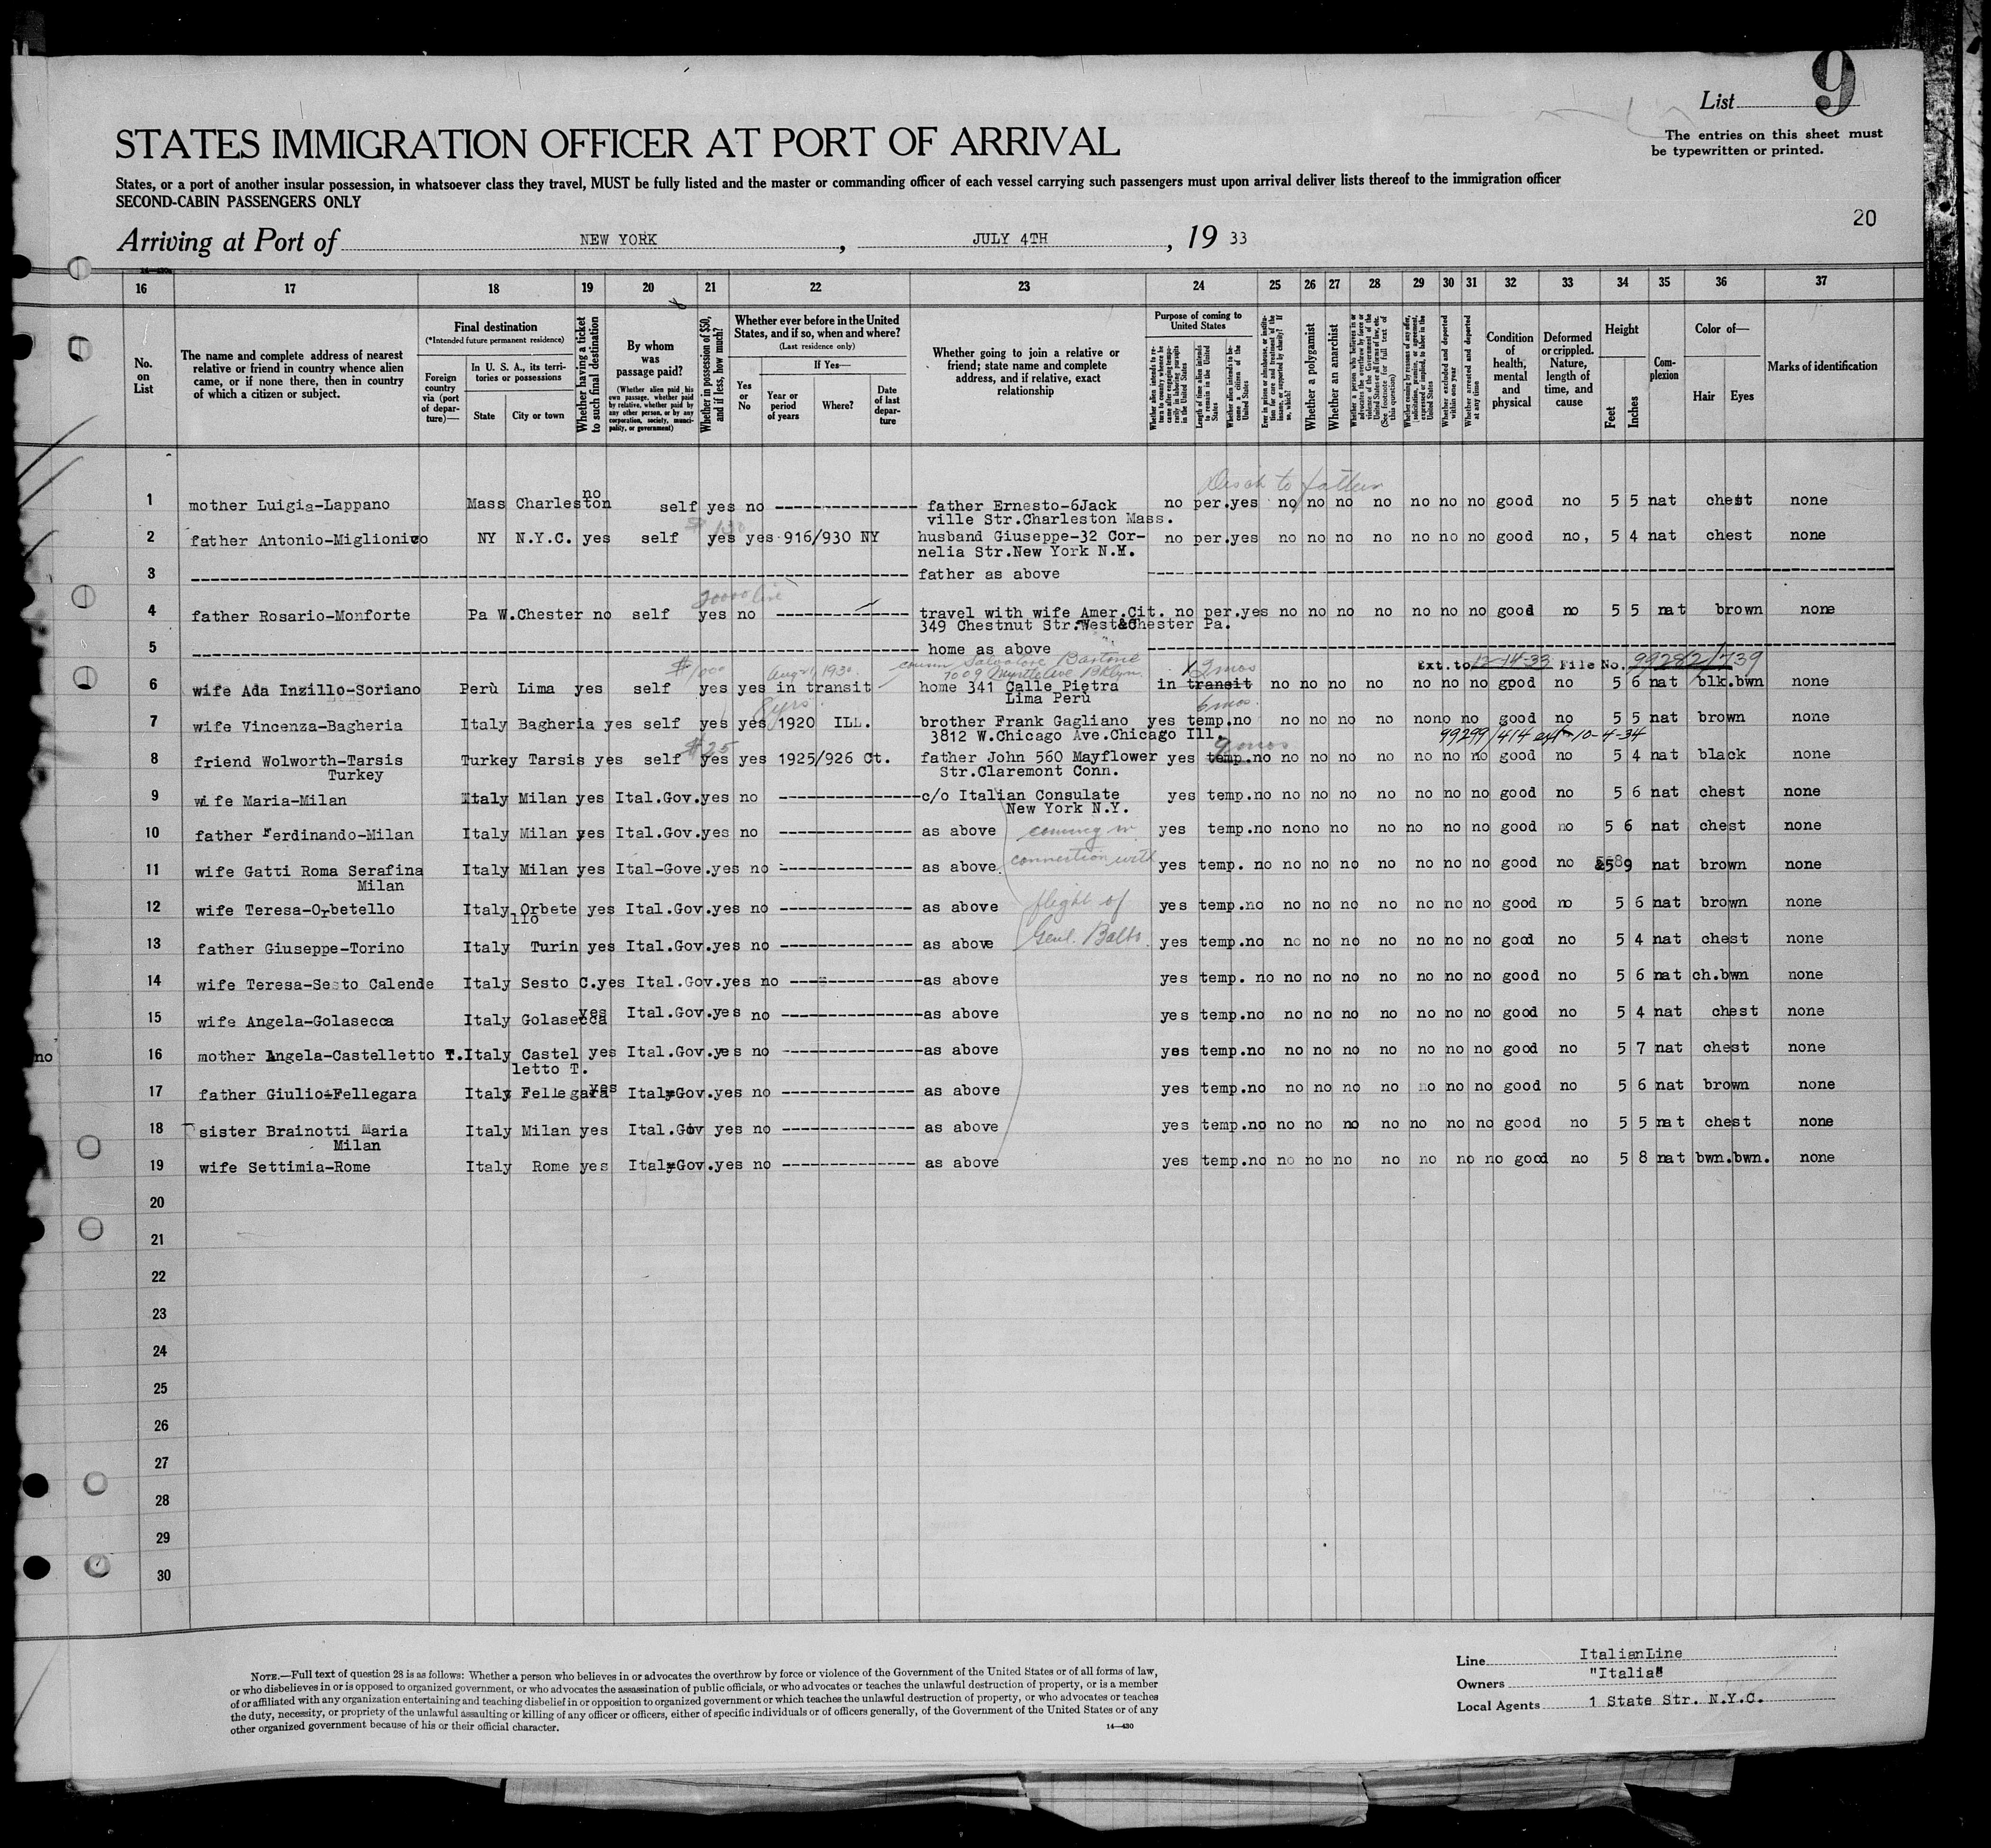 List 9
STATES IMMIGRATION OFFICER AT PORT OF ARRIVAL
The entries on this sheet must
be typewritten or printed.
States, or a port of another insular possession, in whatsoever class they travel, MUST be fully listed and the master or commanding officer of each vessel carrying such passengers must upon arrival deliver lists thereof to the immigration officer
SECOND-CABIN PASSENGERS ONLY
20
Arriving at Port of NEW YORK, JULY 4TH, 19 33
16 17 18 19 20 21 22 23 24 25 26 27 28 29 30 31 32 33 34 35 36 37
No. on List
The name and complete address of nearest relative or friend in country whence alien came, or if none there, then in country of which a citizen or subject.
Final destination
(*Intended future permanent residence)
Foreign country via (port of departure)—
In U. S. A., its territories or possessions
State
City or town
Whether having a ticket to such final destination
By whom was passage paid?
(Whether alien paid his own passage, whether paid by relative, whether paid by any other person, or by any corporation, society, municipality, or government)
Whether in possession of $50, and if less, how much?
Whether ever before in the United States, and if so, when and where?
(Last residence only)
Yes or No
If Yes—
Year or period of years
Where?
Date of last departure
Whether going to join a relative or friend; state name and complete address, and if relative, exact relationship
Purpose of coming to United States
Whether alien intends to return to country whence he came after engaging temporarily in laboring pursuits in the United States
Length of time alien intends to remain in the United States
Whether alien intends to become a citizen of the United States
Ever in prison or almshouse, or institution for care and treatment of the insane, or supported by charity? If so, which?
Whether a polygamist
Whether an anarchist
Whether a person who believes in or advocates the overthrow by force or violence of the Government of the United States or all forms of law, etc. (See footnote for full text of this question)
Whether coming by reason of any offer, solicitation, promise or agreement, expressed or implied, to labor in the United States
Whether excluded and deported within one year
Whether arrested and deported at any time
Condition of health, mental and physical
Deformed or crippled. Nature, length of time, and cause
Height
Feet
Inches
Complexion
Color of—
Hair
Eyes
Marks of identification
to father
1 mother Luigia-Lappano Mass Charleston no self yes no father Ernesto-6Jack no per.yes no no no no no no no good no 5 5 nat chest none
ville Str.Charleston Mass.
2 father Antonio-Miglionico NY N.Y.C. yes self yes yes 916/930 NY husband Giuseppe-32 Cor- no per.yes no no no no no no no good no, 5 4 nat chest none
nelia Str.New York N.Y.
3 father as above
20000 lire
4 father Rosario-Monforte Pa W.Chester no self yes no travel with wife Amer.Cit. no per.yes no no no no no no no good no 5 5 nat brown none
349 Chestnut Str.West&Chester Pa.
5 home as above
$1000 Aug 1930 cousin Salvatore Bartone 2 mos Ext. to 12-14-33 File No. 99282/739
7009 Myrtle Ave Bklyn.
6 wife Ada Inzillo-Soriano Perù Lima yes self yes yes in transit home 341 Calle Pietra in transit no no no no no no no good no 5 6 nat blk.bwn none
Lima Perù
8 yrs 6 mos.
7 wife Vincenza-Bagheria Italy Bagheria yes self yes yes 1920 ILL. brother Frank Gagliano yes temp.no no no no no nono no good no 5 5 nat brown none
3812 W.Chicago Ave.Chicago Ill.
$25 mos 99299/414 ext 10-4-34
8 friend Wolworth-Tarsis Turkey Tarsis yes self yes yes 1925/926 Ct. father John 560 Mayflower yes temp.no no no no no no no no good no 5 4 nat black none
Turkey Str.Claremont Conn.
9 wife Maria-Milan Italy Milan yes Ital.Gov.yes no c/o Italian Consulate yes temp.no no no no no no no no good no 5 6 nat chest none
New York N.Y.
10 father Ferdinando-Milan Italy Milan yes Ital.Gov.yes no as above coming in yes temp.no nono no no no no no good no 5 6 nat chest none
11 wife Gatti Roma Serafina Italy Milan yes Ital-Gove.yes no as above. connection with yes temp. no no no no no no no no good no 5 9 nat brown none
Milan
12 wife Teresa-Orbetello Italy Orbete yes Ital.Gov.yes no as above flight of yes temp.no no no no no no no no good no 5 6 nat brown none
llo
13 father Giuseppe-Torino Italy Turin yes Ital.Gov.yes no as above Genl. Balbo yes temp.no no no no no no no no good no 5 4 nat chest none
14 wife Teresa-Sesto Calende Italy Sesto C.yes Ital.Gov.yes no as above yes temp. no no no no no no no no good no 5 6 nat ch.bwn none
15 wife Angela-Golasecca Italy Golasecca yes Ital.Gov.yes no as above yes temp.no no no no no no no no good no 5 4 nat chest none
no 16 mother Angela-Castelletto T.Italy Castel yes Ital.Gov.yes no as above yes temp.no no no no no no no no good no 5 7 nat chest none
letto T.
17 father Giulio-Fellegara Italy Fellegara yes Ital.Gov.yes no as above yes temp.no no no no no no no no good no 5 6 nat brown none
18 sister Brainotti Maria Italy Milan yes Ital.Gov yes no as above yes temp.no no no no no no no no good no 5 5 nat chest none
Milan
19 wife Settimia-Rome Italy Rome yes Ital.Gov.yes no as above yes temp.no no no no no no no no good no 5 8 nat bwn.bwn. none
20
21
22
23
24
25
26
27
28
29
30
NOTE.—Full text of question 28 is as follows: Whether a person who believes in or advocates the overthrow by force or violence of the Government of the United States or of all forms of law,
or who disbelieves in or is opposed to organized government, or who advocates the assassination of public officials, or who advocates or teaches the unlawful destruction of property, or is a member
of or affiliated with any organization entertaining and teaching disbelief in or opposition to organized government or which teaches the unlawful destruction of property, or who advocates or teaches
the duty, necessity, or propriety of the unlawful assaulting or killing of any officer or officers, either of specific individuals or of officers generally, of the Government of the United States or of any
other organized government because of his or their official character.
14—430
Line ItalianLine
Owners "Italia"
Local Agents 1 State Str. N.Y.C.